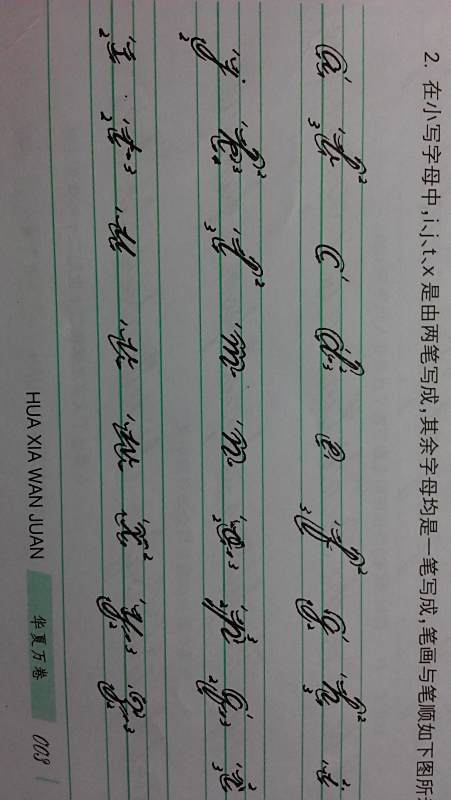 2. 在小写字母中,i、j、t、x 是由两笔写成,其余字母均是一笔写成,笔画与笔顺如下图所
a b c d e f g h i
j k l m n o p q r
s t u v w x y z
HUA XIA WAN JUAN 华夏万卷 003